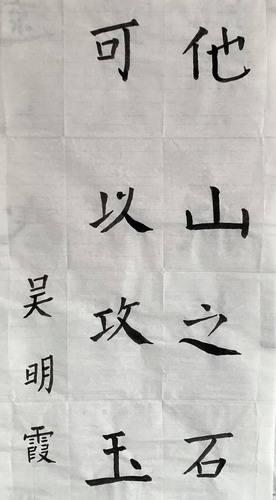 他山之石
可以攻玉
吴明霞